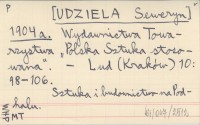 P [UDZIELA Seweryn]
1904 a. Wydawnictwa Towa-
rzystwa „Polska Sztuka stoso-
wana" – Lud (Kraków) 10:
98-106.
Sztuka i budownictwo na Pod-
halu.
MT